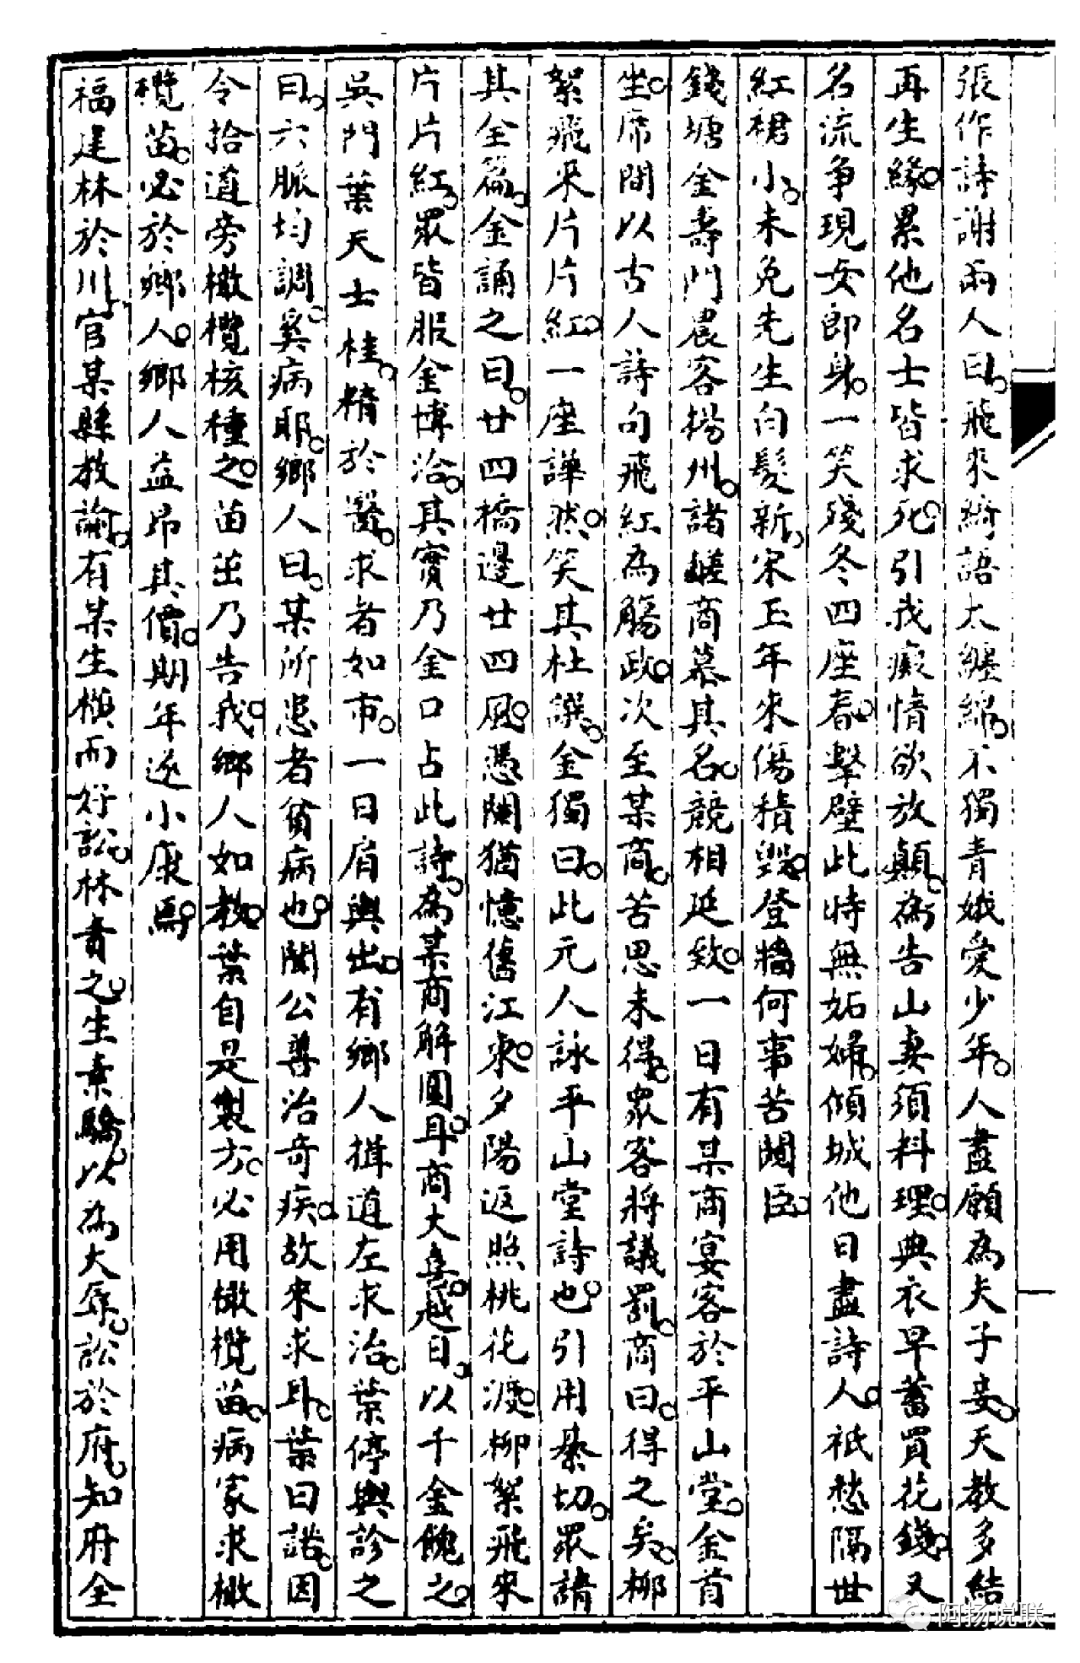 張作詩謝兩人曰飛來綺語太纏綿不獨青娥愛少年人盡願為夫子妾天教多結
再生緣累他名士皆求死引我癡情欲放顛為告山妻須料理典衣早蓄買花錢又
名流爭現女郎身一笑殘冬四座春擊壁此時無妬婦傾城他日盡詩人祇愁隔世
紅裙小未免先生白髮新宋玉年來傷積毀登牆何事苦闚臣
錢塘金壽門農客揚州諸鹾商慕其名競相延致一日有某商宴客於平山堂金首
坐席間以古人詩句飛紅為觴政次至某商苦思未得眾客將議罰商曰得之矣柳
絮飛來片片紅一座譁然笑其杜譔金獨曰此元人詠平山堂詩也引用綦切眾請
其全篇金誦之曰廿四橋邊廿四風憑闌猶憶舊江東夕陽返照桃花渡柳絮飛來
片片紅眾皆服金博洽其實乃金口占此詩為某商解圍耳商大喜越日以千金餽之
吳門葉天士桂精於醫求者如市一日肩輿出有鄉人揖道左求治葉停輿診之
曰六脈均調奚病耶鄉人曰某所患者貧病也聞公善治奇疾故來求耳葉曰諾因
令拾道旁橄欖核種之苗茁乃告我鄉人如教葉自是製方必用橄欖苗病家求橄
欖苗必於鄉人鄉人益昂其價期年遂小康焉
福建林於川官某縣教諭有某生横而好訟林責之生素驕以為大辱訟於府知府全
阿扬说联